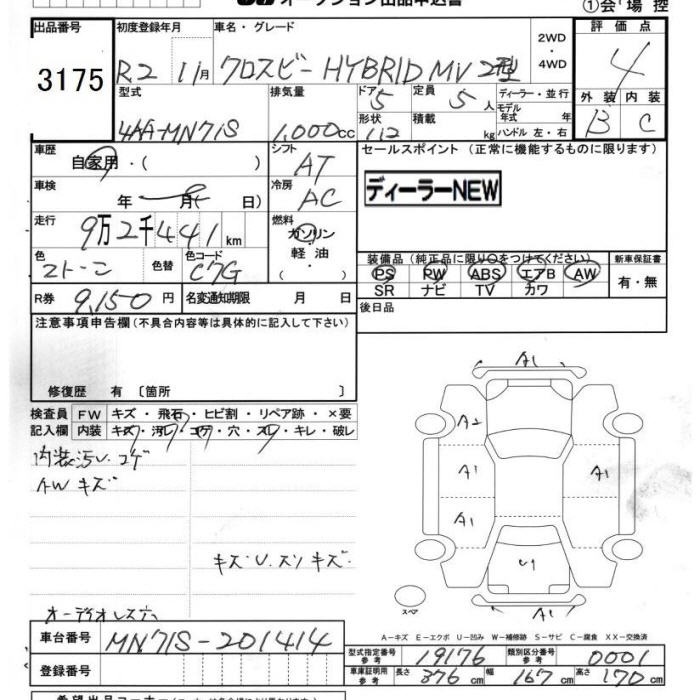 オークション出品申込書
①会 場 控
出品番号
3175
初度登録年月
R2 11月
車名・グレード
クロスビー HYBRID MV 2型
2WD
・
4WD
評価点
4
外装 内装
B C
型式
4AA-MN71S
排気量
1,000cc
ドア 5
形状 112
定員 5人
積載 kg
ディーラー・並行
モデル年式 年
ハンドル 左・右
車歴
自家用・( )
シフト
AT
セールスポイント (正常に機能するものに限ります)
ディーラーNEW
車検
年 月( 日)
冷房
AC
走行
9万2千441km
燃料
ガソリン
軽油
・
色
2トーン
色替
色コード
C7G
装備品 (純正品に限り○をつけてください)
PS PW ABS エアB AW
SR ナビ TV カワ
新車保証書
有・無
R券 9,150円
名変通知期限 月 日
後日品
注意事項申告欄 (不具合内容等は具体的に記入して下さい)
修復歴 有 〔箇所 〕
検査員記入欄
FW キズ・飛石・ヒビ割・リペア跡・×要
内装 キズ・汚レ・コゲ・穴・スレ・キレ・破レ
内装汚レ コゲ
AW キズ
キズ U. スリキズ
オーディオレス
A1
A2
A1
A1
A1
U1
A1
スペア
A-キズ E-エクボ U-凹み W-補修跡 S-サビ C-腐食 XX-交換済
車台番号
MN71S-201414
登録番号
型式指定番号 参考 19176
類別区分番号 参考 0001
車庫証明用 参考 長さ 376cm 幅 167cm 高さ 170cm